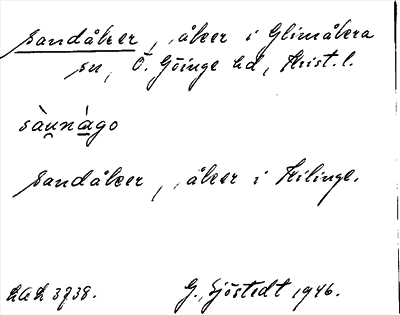 sandåker, åker i Glimåkra
sn, Ö. Göinge hd, Krist. l.
sàu̯ná̱go
sandåker, åker i Kilinge.
LAL 3738.
G. Sjöstedt 1946.